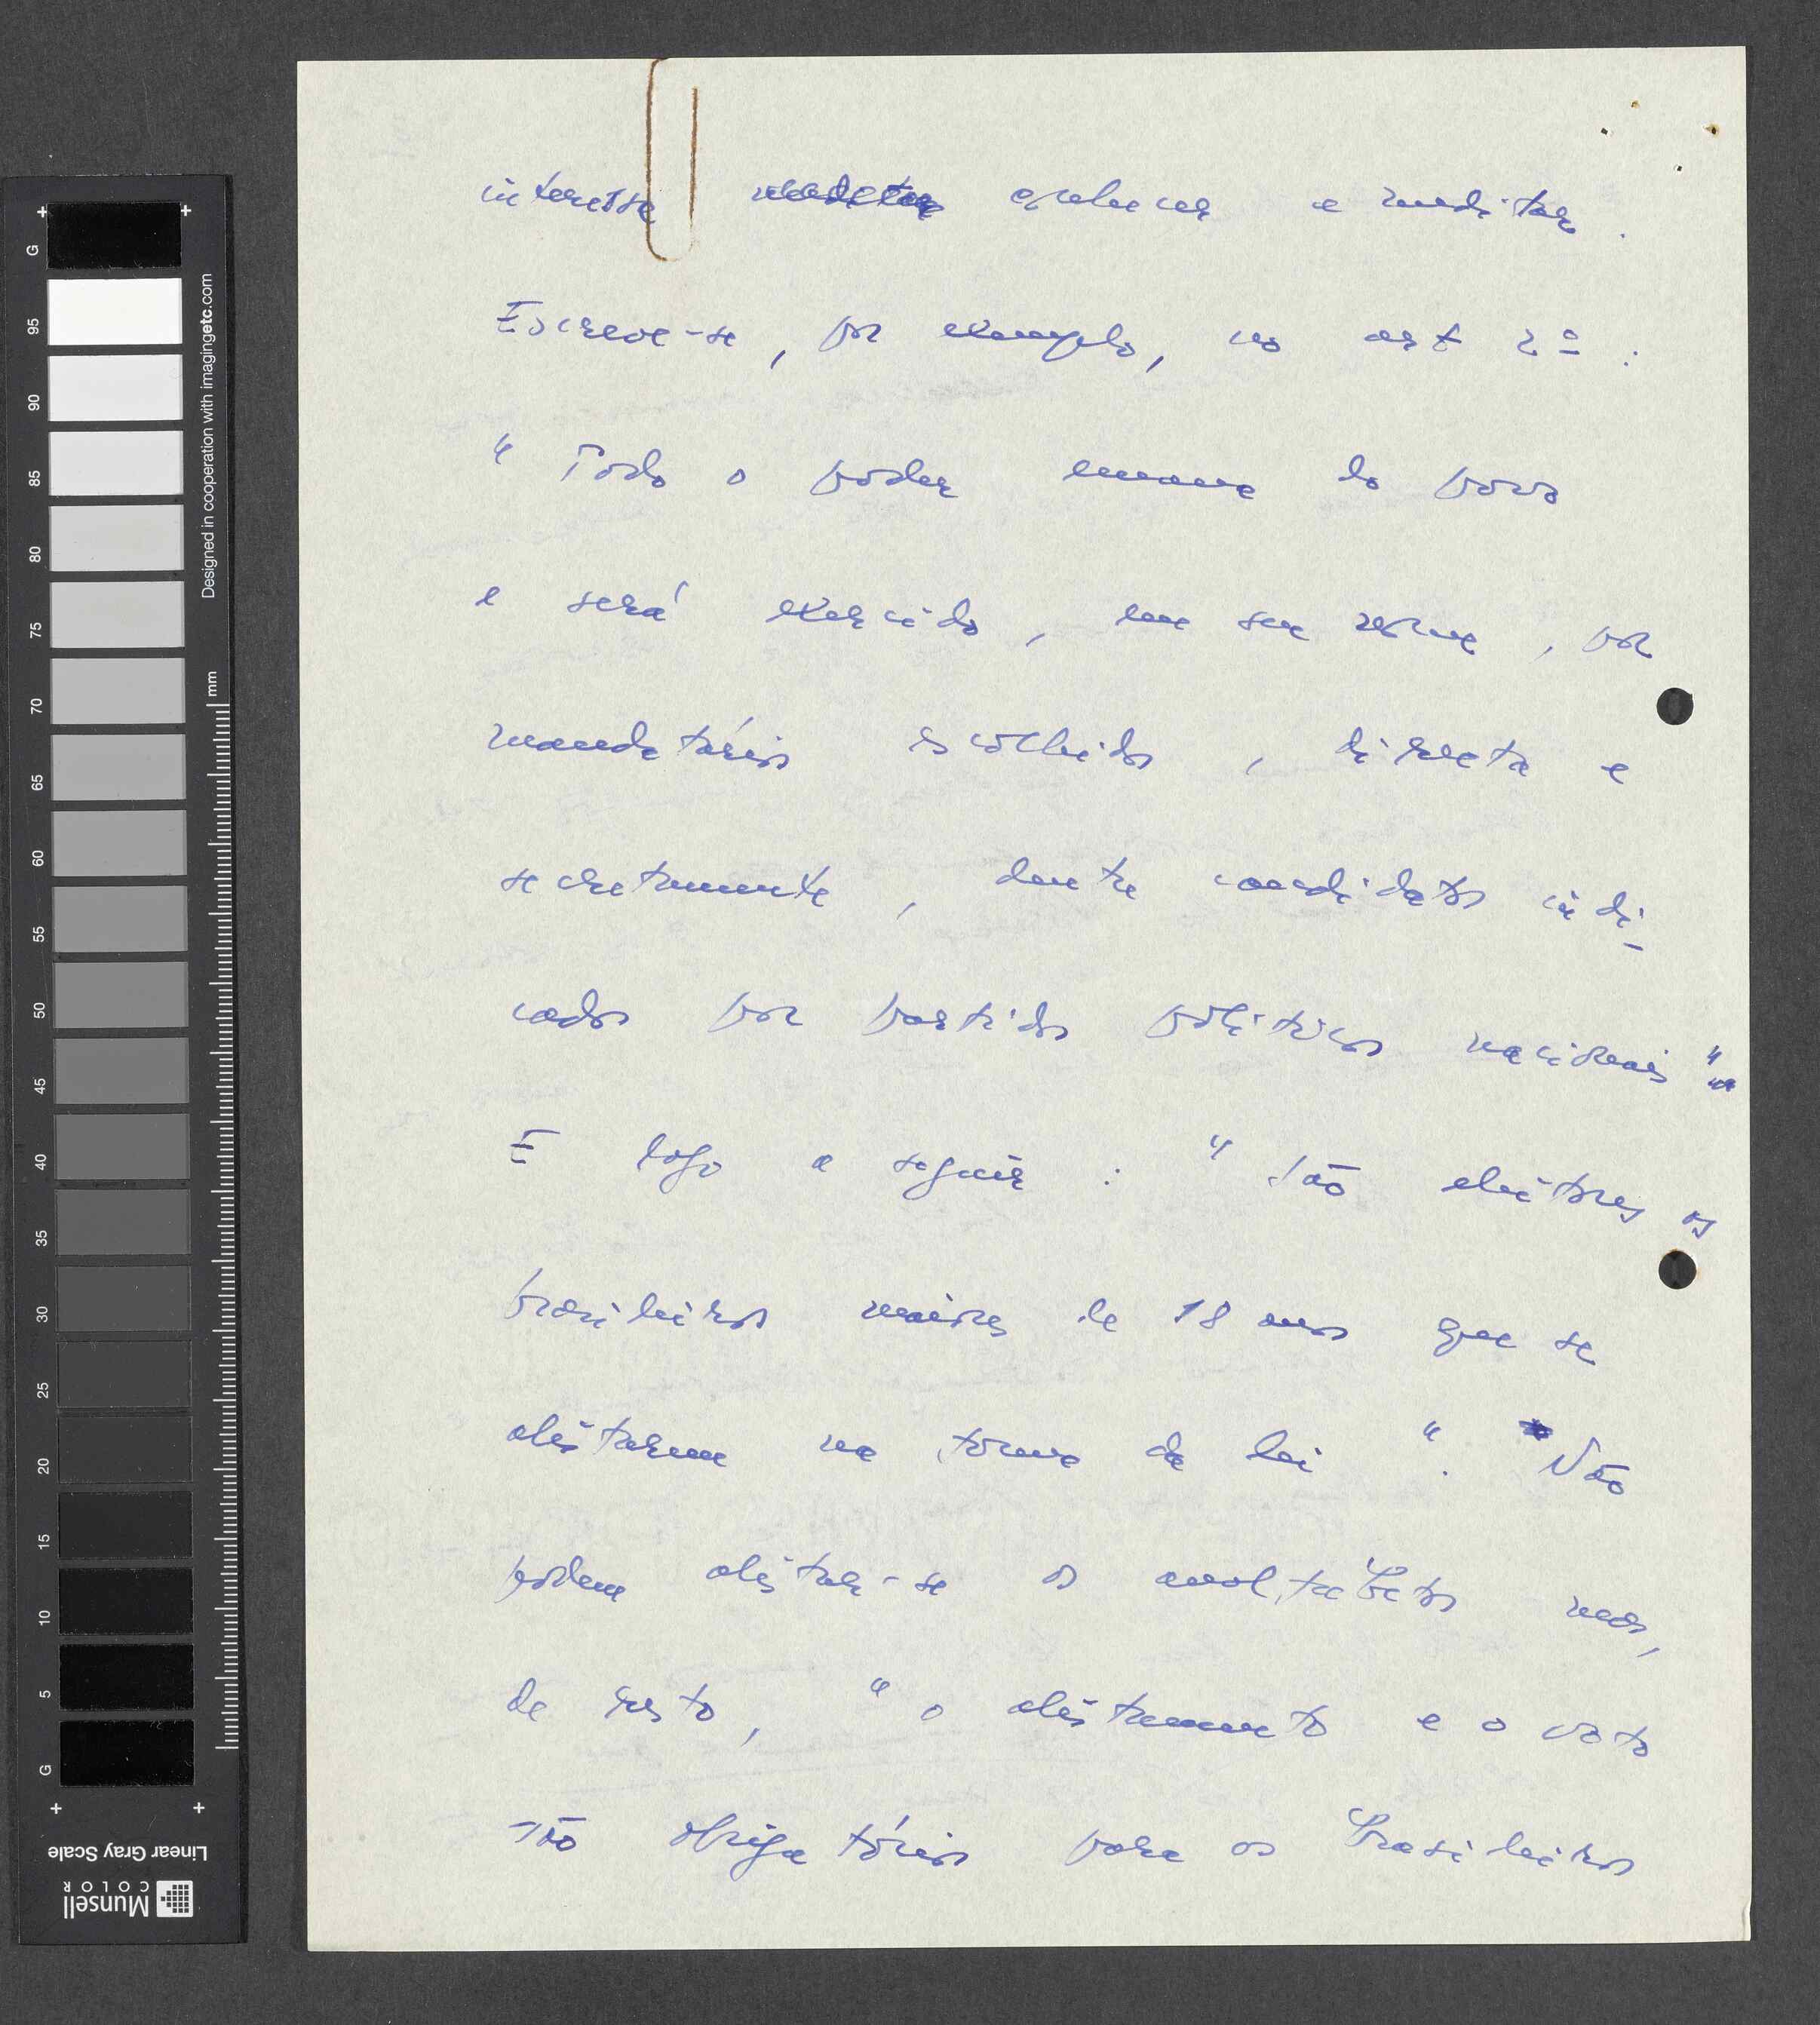 interesse conhecer e meditar.
Escreve-se, por exemplo, no art 2º:
" Todo o poder emana do povo
e será exercido, em seu nome, por
mandatários escolhidos, directa e
secretamente, dentre candidatos indi-
cados por partidos políticos nacionais "
E logo a seguir: " São eleitores os
brasileiros maiores de 18 anos que se
alistarem na forma da lei ". Não
podem alistar-se os analfabetos mas,
de resto, " o alistamento e o voto
são obrigatórios para os brasileiros
G
95
90
85
80
75
70
65
60
55
50
45
40
35
30
25
20
15
10
5
G
Designed in cooperation with imagingetc.com
mm
Linear Gray Scale
Munsell
COLOR